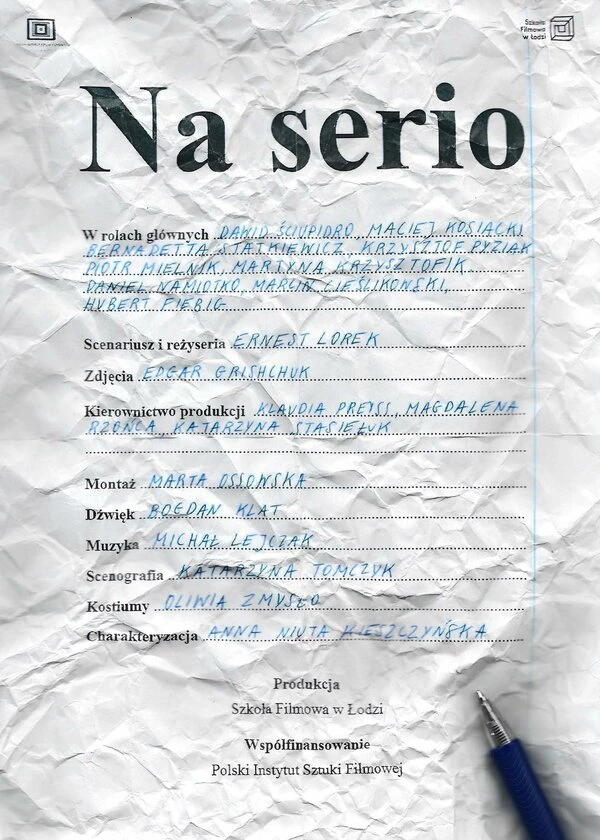 Szkoła
Filmowa
w Łodzi
Na serio
W rolach głównych DAWID ŚCIUPIDRO, MACIEJ KOSIACKI,
BERNADETTA STATKIEWICZ, KRZYSZTOF PYZIAK
PIOTR MIELNIK, MARTYNA KRZYSZTOFIK
DANIEL NAMIOTKO, MARCIN CIEŚLIKOWSKI,
HUBERT FIEBIG
Scenariusz i reżyseria ERNEST LOREK
Zdjęcia EDGAR GRISHCHUK
Kierownictwo produkcji KLAUDIA PREYSS, MAGDALENA
RZOŃCA, KATARZYNA STASIEŁUK
Montaż MARTA OSSOWSKA
Dźwięk BOGDAN KLAT
Muzyka MICHAŁ LEJCZAK
Scenografia KATARZYNA TOMCZYK
Kostiumy OLIWIA ZMYSŁO
Charakteryzacja ANNA NIUTA KIESZCZYŃSKA
Produkcja
Szkoła Filmowa w Łodzi
Współfinansowanie
Polski Instytut Sztuki Filmowej